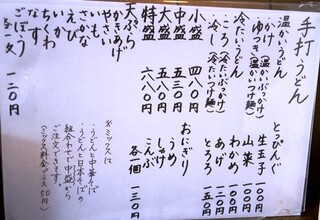 手打うどん
温かいうどん
かけ(温かいぶっかけ)
ゆうき(温かいつけ麺)
冷たいうどん
ころ(冷たいぶっかけ)
冷し(冷たいつけ麺)
小盛 四〇〇円
中盛 五三〇円
大盛 六一〇円
特盛 六八〇円
天ぷら
かきあげ
やさい
いも
さかな
えび
いか
ちくわ
なす
ごぼう
各一ヶ 一三〇円
とっぴんぐ
生玉子 一〇〇円
山菜 一〇〇円
わかめ 一〇〇円
あげ 一〇〇円
とろろ 一五〇円
おにぎり
うめ
しゃけ
こんぶ
各一個 一三〇円
※ミックスは
・うどんと中華そば
・うどんと日本そばの
組合わせで中盛から
ご注文できます。
(ミックス料金プラス50円)